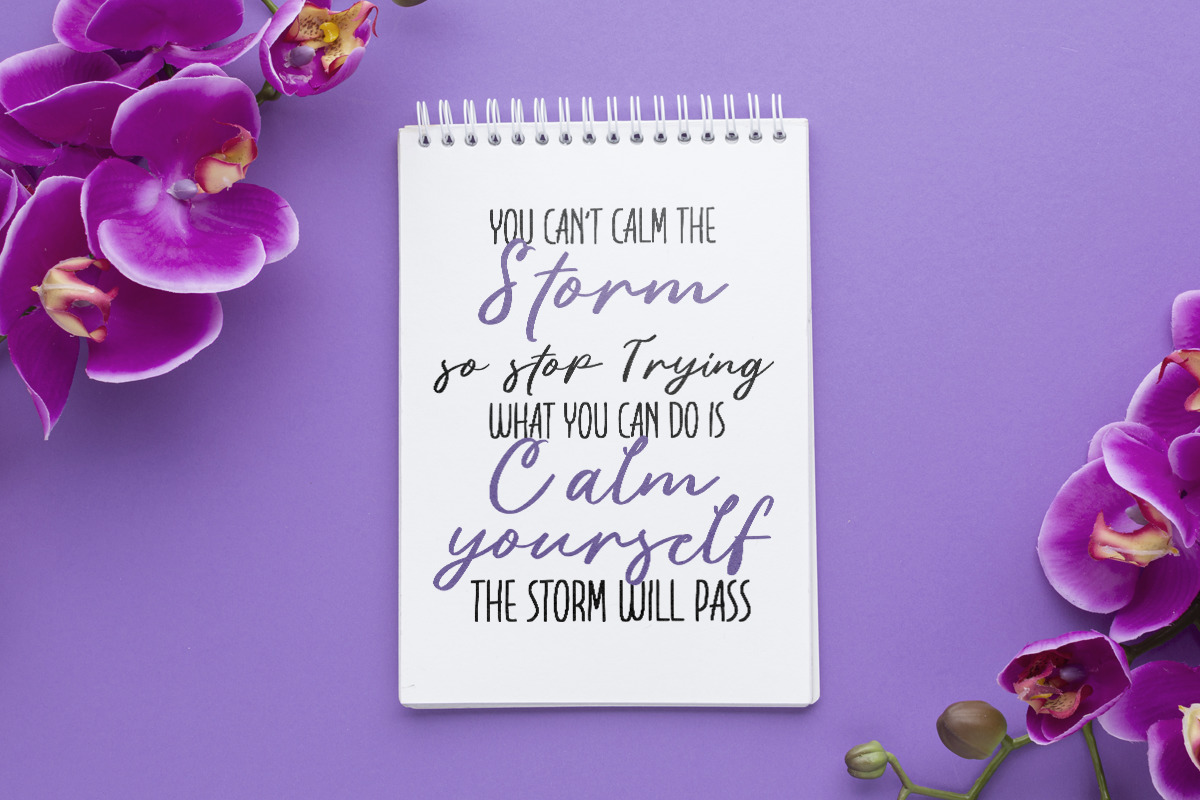 YOU CAN'T CALM THE
Storm
so stop Trying
WHAT YOU CAN DO IS
Calm
yourself
THE STORM WILL PASS